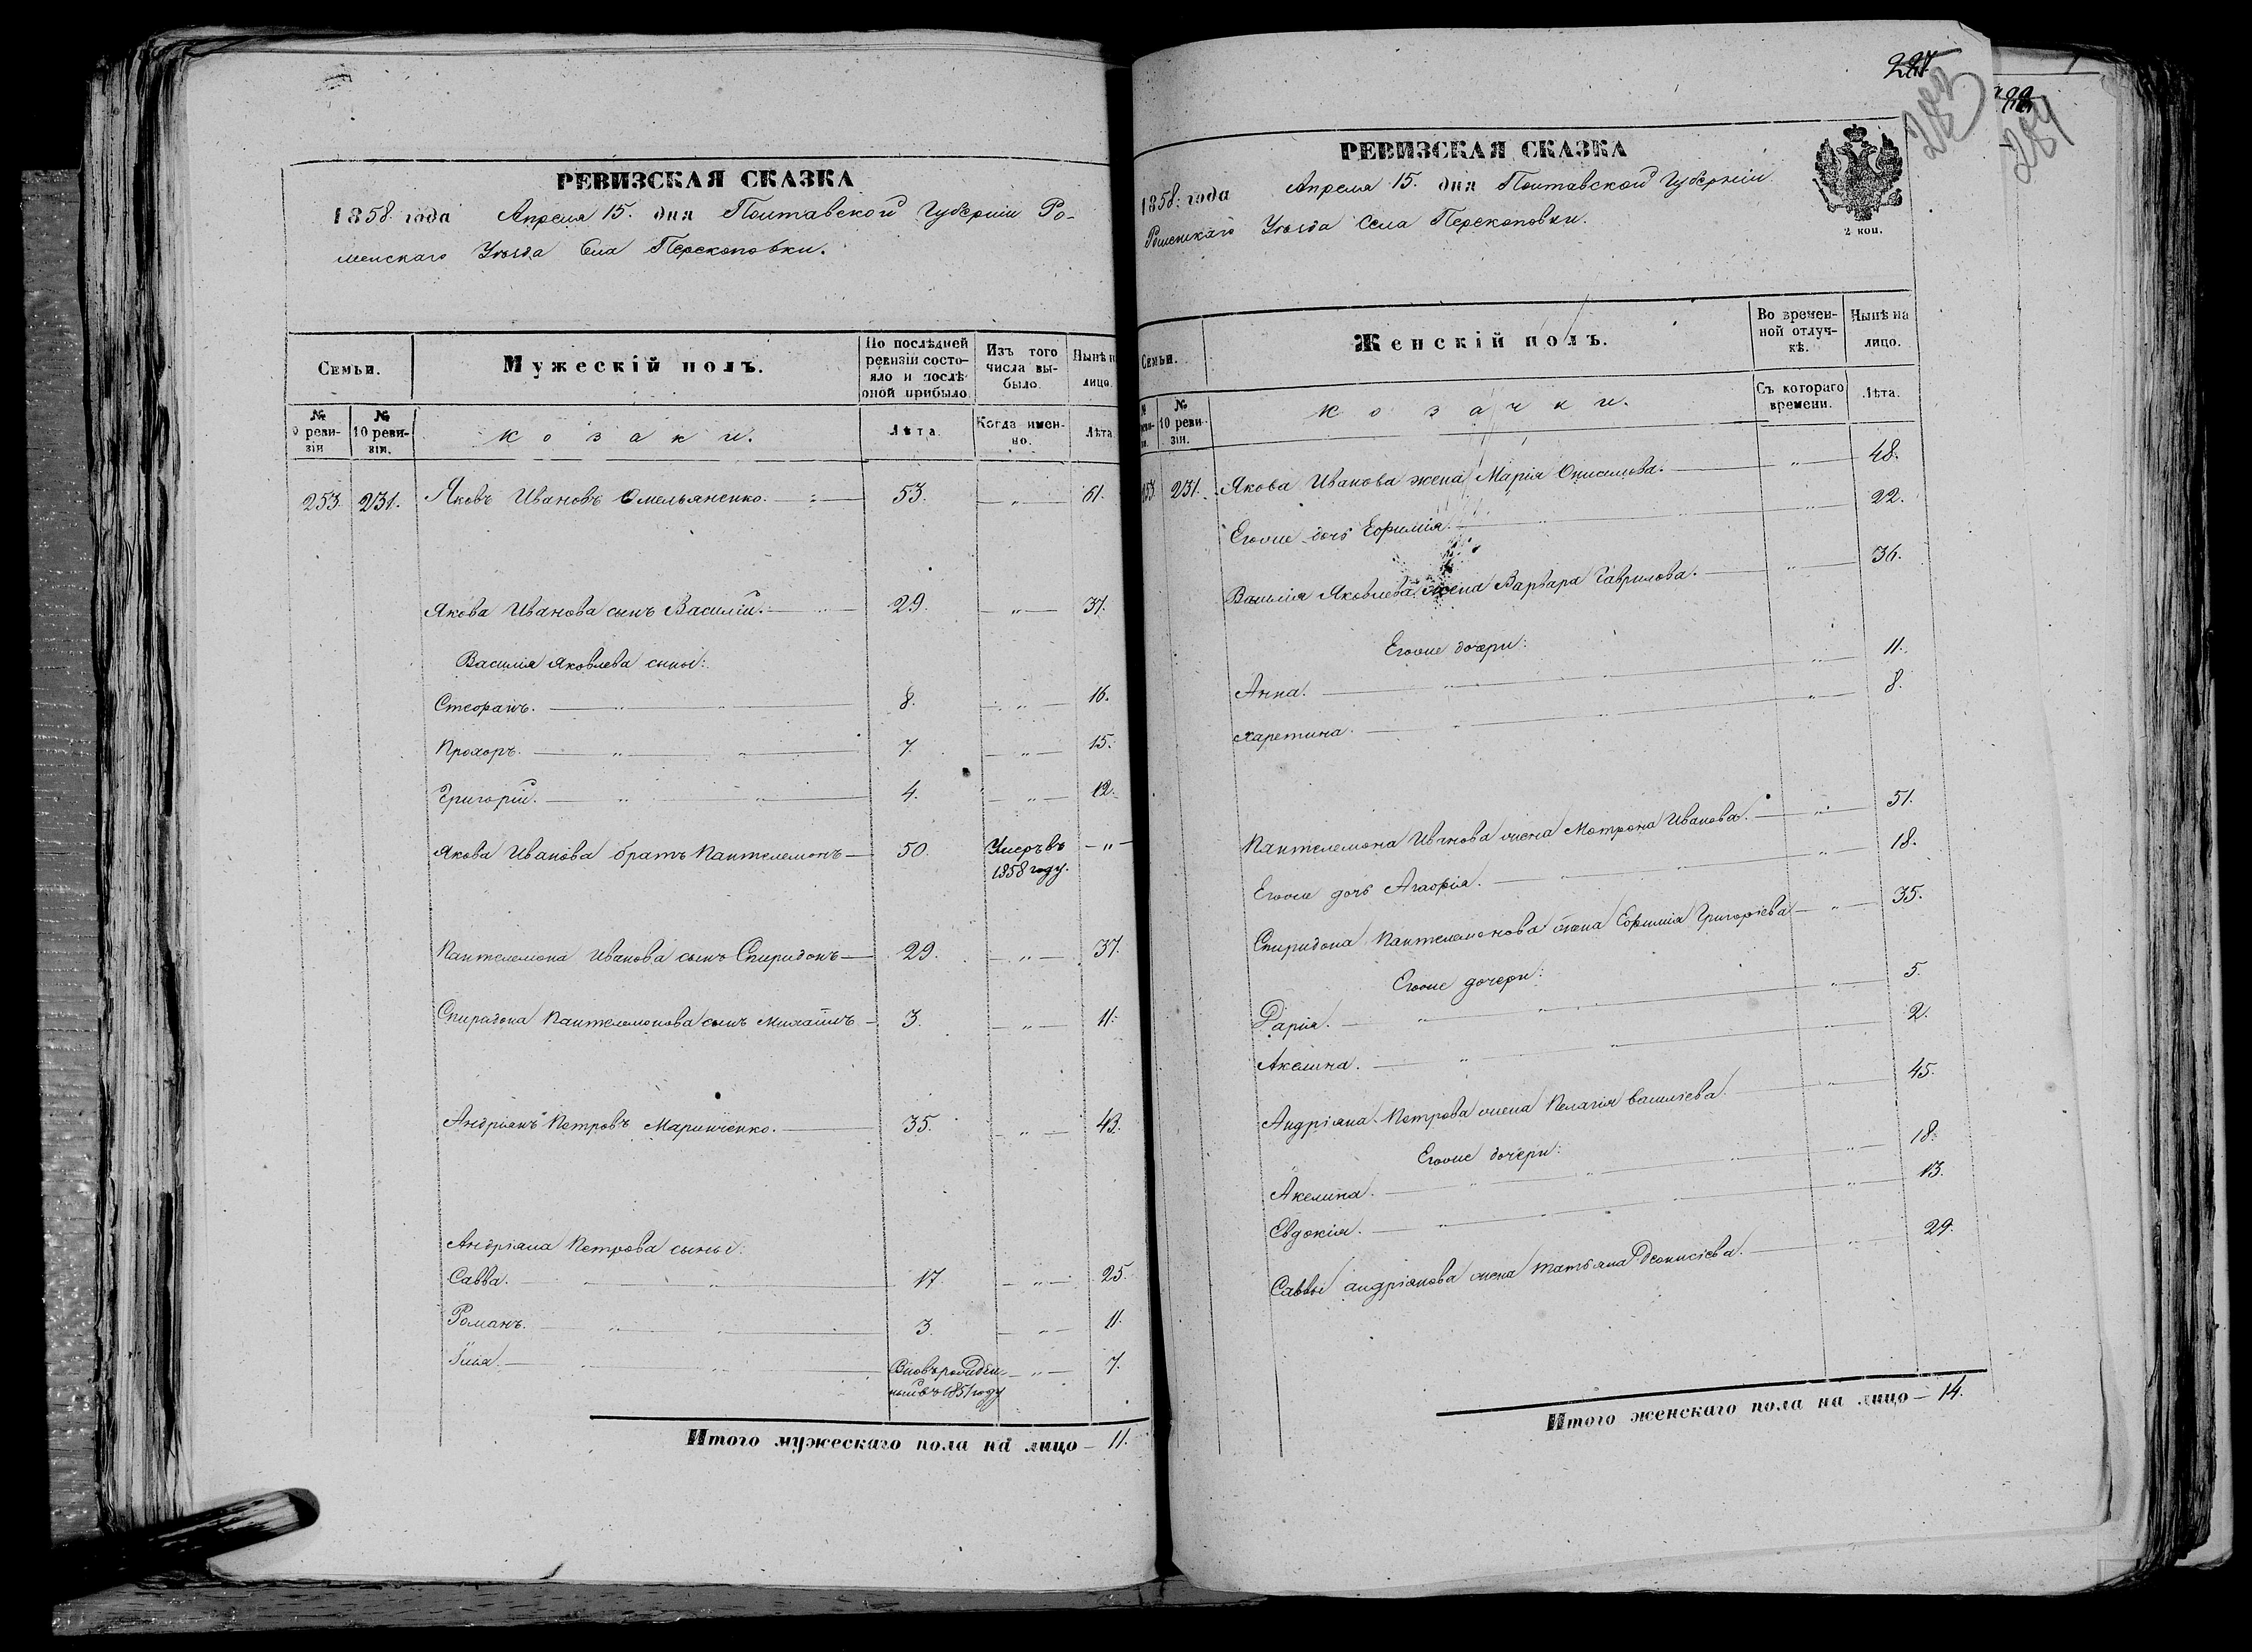 РЕВИЗСКАЯ СКАЗКА
1858 года Апреля 15. дня Полтавской Губерніи Ро-
менскаго Уѣзда Села Перекоповки.
Семьи.
Мужескій полъ.
По послѣдней ревизіи состояло и послѣ оной прибыло.
Изъ того числа выбыло.
Нынѣ на лицо.
№ ревизіи
№ 10 ревизіи.
козаки.
Лѣта.
Когда именно.
Лѣта
253. 231. Яковъ Ивановъ Омельяненко. 53. — " — 61.
Якова Иванова сынъ Василій. 29. — " — 37.
Василія Яковлева сыны:
Стефанъ. 8. — " — 16.
Прохоръ. 7. — " — 15.
Григорій. 4. — " — 12.
Якова Иванова братъ Пантелемонъ — 50. Умеръ въ 1858 году. — " —
Пантелемона Иванова сынъ Спиридонъ — 29. — " — 37.
Спиридона Пантелемонова сынъ Михаилъ — 3. — " — 11.
Андріянъ Петровъ Маринченко. 35. — " — 43.
Андріяна Петрова сыны:
Савва. 17. — " — 25.
Романъ. 3. — " — 11.
Илія. Вновь рожденный въ 1851 году — " — 7.
Итого мужескаго пола на лицо — 11.
РЕВИЗСКАЯ СКАЗКА
1858 года Апреля 15. дня Полтавской Губерніи
Роменскаго Уѣзда Села Перекоповки.
2 коп.
Семьи.
Женскій полъ.
Во временной отлучкѣ.
Нынѣ на лицо.
№ 10 ревизіи.
козачки.
Съ котораго времени.
Лѣта.
253 231. Якова Иванова жена Марія Онисимова. — " — 48.
Егоже дочь Ефимія. — " — 22.
Василія Яковлева жена Варвара Гаврилова. — " — 36.
Егоже дочери:
Анна. — " — 11.
Харетина. — " — 8.
Пантелемона Иванова жена Мотрона Иванова. — " — 51.
Егоже дочь Агафія. — " — 18.
Спиридона Пантелемонова жена Ефимія Григоріева — " — 35.
Егоже дочери:
Дарія. — " — 5.
Акелина. — " — 2.
Андріяна Петрова жена Пелагія Василіева. — " — 45.
Егоже дочери:
Акелина. — " — 18.
Евдокія. — " — 13.
Саввы Андріянова жена Татьяна Деонисіева. — " — 29.
Итого женскаго пола на лицо — 14.